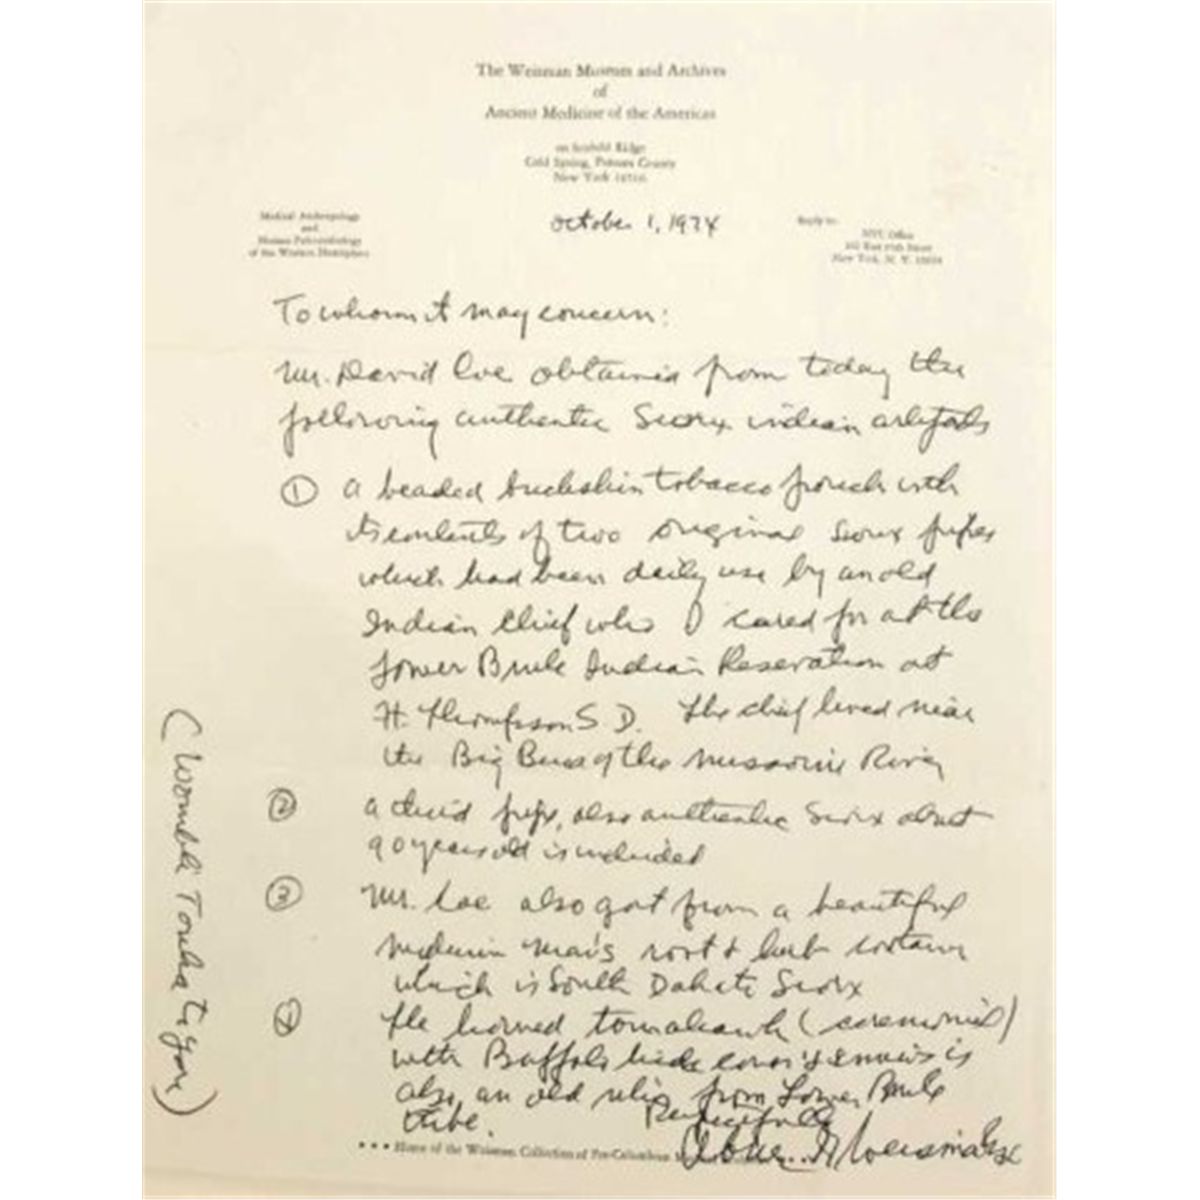 The Weisman Museum and Archives
of
Ancient Medicine of the Americas
Cold Spring, Putnam County
New York
Medical Anthropology
and
Human Paleopathology
of the Western Hemisphere
October 1, 1974
Reply to:
NYC Office
New York, N. Y.
To whom it may concern:
Mr. David Coe obtained from today the
following authentic Sioux indian artifacts
① a beaded buckskin tobacco pouch with
its contents of two original Sioux pipes
which had been daily use by an old
Indian Chief who I cared for at the
Lower Brule Indian Reservation at
Ft. Thompson S D. The chief lived near
the Big Bend of the Missouri River
② a third pipe, also authentic Sioux about
90 years old is included
③ Mr. Coe also got from a beautiful
medicine man's root & herb container
which is South Dakota Sioux
④ The horned tomahawk (ceremonial)
with Buffalo hide cover & sinews is
also, an old relic from Lower Brule
tribe.
Respectfully
Abner I. Weisman
(Wombli Tonka to you)
••• Home of the Weisman Collection of Pre-Columbian